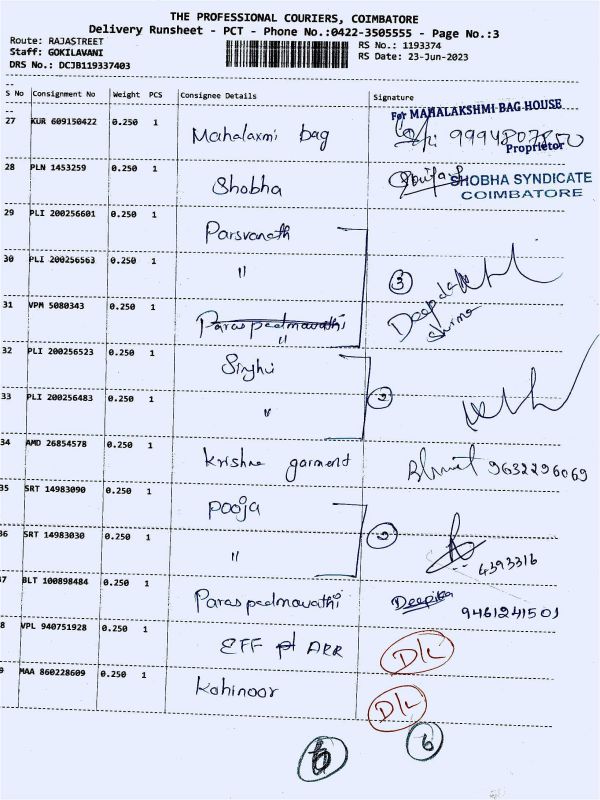 THE PROFESSIONAL COURIERS, COIMBATORE
Delivery Runsheet - PCT - Phone No.:0422-3505555 - Page No.:3
Route: RAJASTREET
Staff: GOKILAVANI
DRS No.: DCJB119337403
RS No.: 1193374
RS Date: 23-Jun-2023
S No Consignment No Weight PCS Consignee Details Signature
27 KUR 609150422 0.250 1 Mahalaxmi bag
For MAHALAKSHMI BAG HOUSE
Proprietor
28 PLN 1453259 0.250 1 Shobha
SHOBHA SYNDICATE
COIMBATORE
29 PLI 200256601 0.250 1 Parsvanath
30 PLI 200256563 0.250 1 " 3
31 VPM 5080343 0.250 1 Paraspadmavathi "
Deepak
Sharma
32 PLI 200256523 0.250 1 Singhvi
33 PLI 200256483 0.250 1 " 2
34 AMD 26854578 0.250 1 Krishna garment 9632296069
35 SRT 14983090 0.250 1 pooja
36 SRT 14983030 0.250 1 " 2 4393316
7 BLT 100898484 0.250 1 Paraspadmavathi Deepika 9461241501
8 VPL 940751928 0.250 1 EFF pt ARR D/L
9 MAA 860228609 0.250 1 Kohinoor D/L
6 6